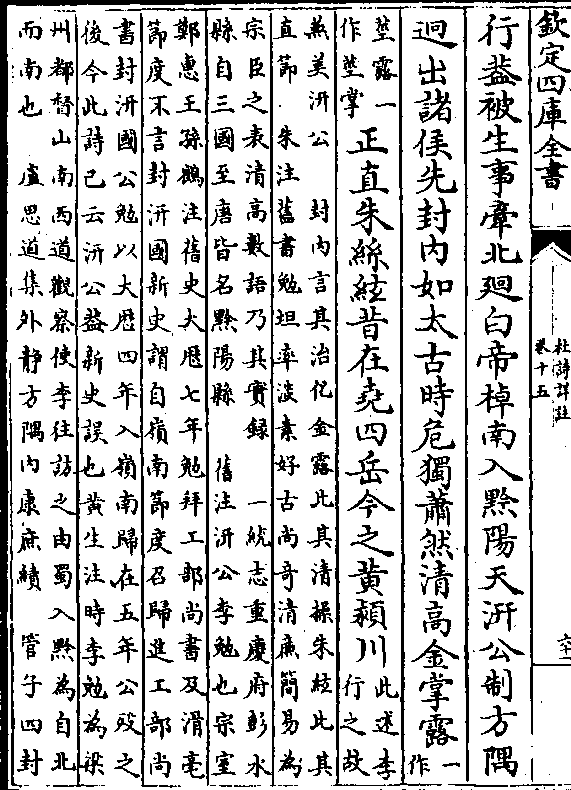 欽定四庫全書
杜詩詳註
卷十五
行葢被生事牽北廻白帝棹南入黔陽天汧公制方隅
迥出諸侯先封内如太古時危獨蕭然清高金掌露一作
莖露一
作莖掌
正直朱絲絃昔在堯四岳今之黄潁川
此述李
行之故
燕美汧公　封内言其治化金露此其清操朱絃此其
直節　朱注舊書勉坦率淡素好古尚奇清廉簡易為
宗臣之表清高數語乃其實録　一統志重慶府彭水
縣自三國至唐皆名黔陽縣　舊注汧公李勉也宗室
鄭惠王孫鶴注舊史大厯七年勉拜工部尚書及滑亳
節度不言封汧國新史謂自嶺南節度召歸進工部尚
書封汧國公勉以大厯四年入嶺南歸在五年公殁之
後今此詩已云汧公葢新史誤也黄生注時李勉為梁
州都督山南西道觀察使李往訪之由蜀入黔為自北
而南也　盧思道集外静方隅内康庶績　管子四封